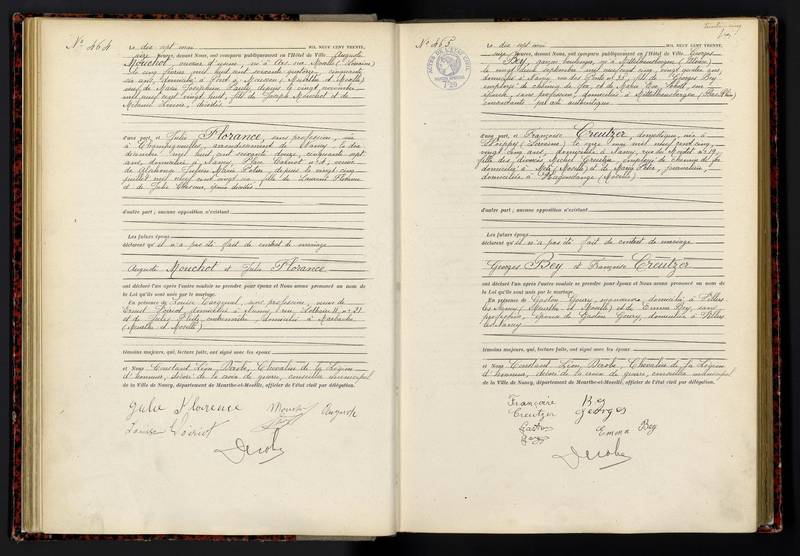 No. 464
Le dix sept mai MIL NEUF CENT TRENTE,
seize heures, devant Nous, ont comparu publiquement en l'Hôtel de Ville Auguste
Mouchot, ouvrier d'usine, né à Ars sur Moselle (Lorraine)
le cinq février mil huit cent soixante quatorze, cinquante
six ans, domicilié à Pont à Mousson (Meurthe et Moselle)
veuf de Marie Joséphine Pauly depuis le vingt novembre
mil neuf cent vingt huit, fils de Joseph Mouchot et de
décédés
d'une part, et Julie Florance, sans profession, née
à Champigneulles, arrondissement de Nancy le dix
décembre mil huit cent soixante douze, cinquante sept
ans, domiciliée à Nancy, Place Carnot no
depuis le vingt cinq
juillet mil neuf cent vingt six, fille de Laurent Florance
et de Julie époux décédés
d'autre part ; aucune opposition n'existant
Les futurs époux
déclarent qu'il n'a pas été fait de contrat de mariage
Auguste Mouchot et Julie Florance
ont déclaré l'un après l'autre vouloir se prendre pour époux et Nous avons prononcé au nom de
la Loi qu'ils sont unis par le mariage.
En présence de Louise sans profession, veuve de
Ernest Poiriot domiciliée à Nancy, rue no 21
et de Jules domicilié à Maxéville
(Meurthe et Moselle)
témoins majeurs, qui, lecture faite, ont signé avec les époux
et Nous Constant Léon Dérobe, Chevalier de la Légion
d'honneur, décoré de la croix de guerre, conseiller municipal
de la Ville de Nancy, département de Meurthe-et-Moselle, officier de l'état civil par délégation.
Julie Florence Mouchot Auguste
Louise Poiriot
Derobe
No. 465
Le dix sept mai MIL NEUF CENT TRENTE,
seize heures, devant Nous, ont comparu publiquement en l'Hôtel de Ville Georges
Bey, garçon boulanger, né à Mittelhausbergen (Alsace)
le vingt deux septembre mil neuf cent cinq, vingt quatre ans,
domicilié à Nancy, rue des Ponts no 35, fils de Georges Bey
employé de chemin de fer, et de Marie Eve son
épouse, sans profession, domiciliés à Mittelhausbergen (Bas Rhin)
consentants par acte authentique
d'une part, et Françoise Creutzer, domestique, née à
(Lorraine) le onze mai mil neuf cent cinq,
vingt cinq ans, domiciliée à Nancy, rue du no 19
fille des divorcés Michel Creutzer, employé de chemin de fer
domicilié à Metz (Moselle) et de Marie journalière,
domiciliée à Hagondange (Moselle)
d'autre part ; aucune opposition n'existant
Les futurs époux
déclarent qu'il n'a pas été fait de contrat de mariage
Georges Bey et Françoise Creutzer
ont déclaré l'un après l'autre vouloir se prendre pour époux et Nous avons prononcé au nom de
la Loi qu'ils sont unis par le mariage.
En présence de Gaston Goury, domicilié à Villers
les Nancy (Meurthe et Moselle) et de Emma Bey, sans
profession, épouse de Gaston Goury, domiciliée à Villers
les Nancy
témoins majeurs, qui, lecture faite, ont signé avec les époux
et Nous Constant Léon Dérobe, Chevalier de la Légion
d'honneur, décoré de la croix de guerre, conseiller municipal
de la Ville de Nancy, département de Meurthe-et-Moselle, officier de l'état civil par délégation.
Françoise Bey
Creutzer Georges
Gaston Emma Bey
Derobe